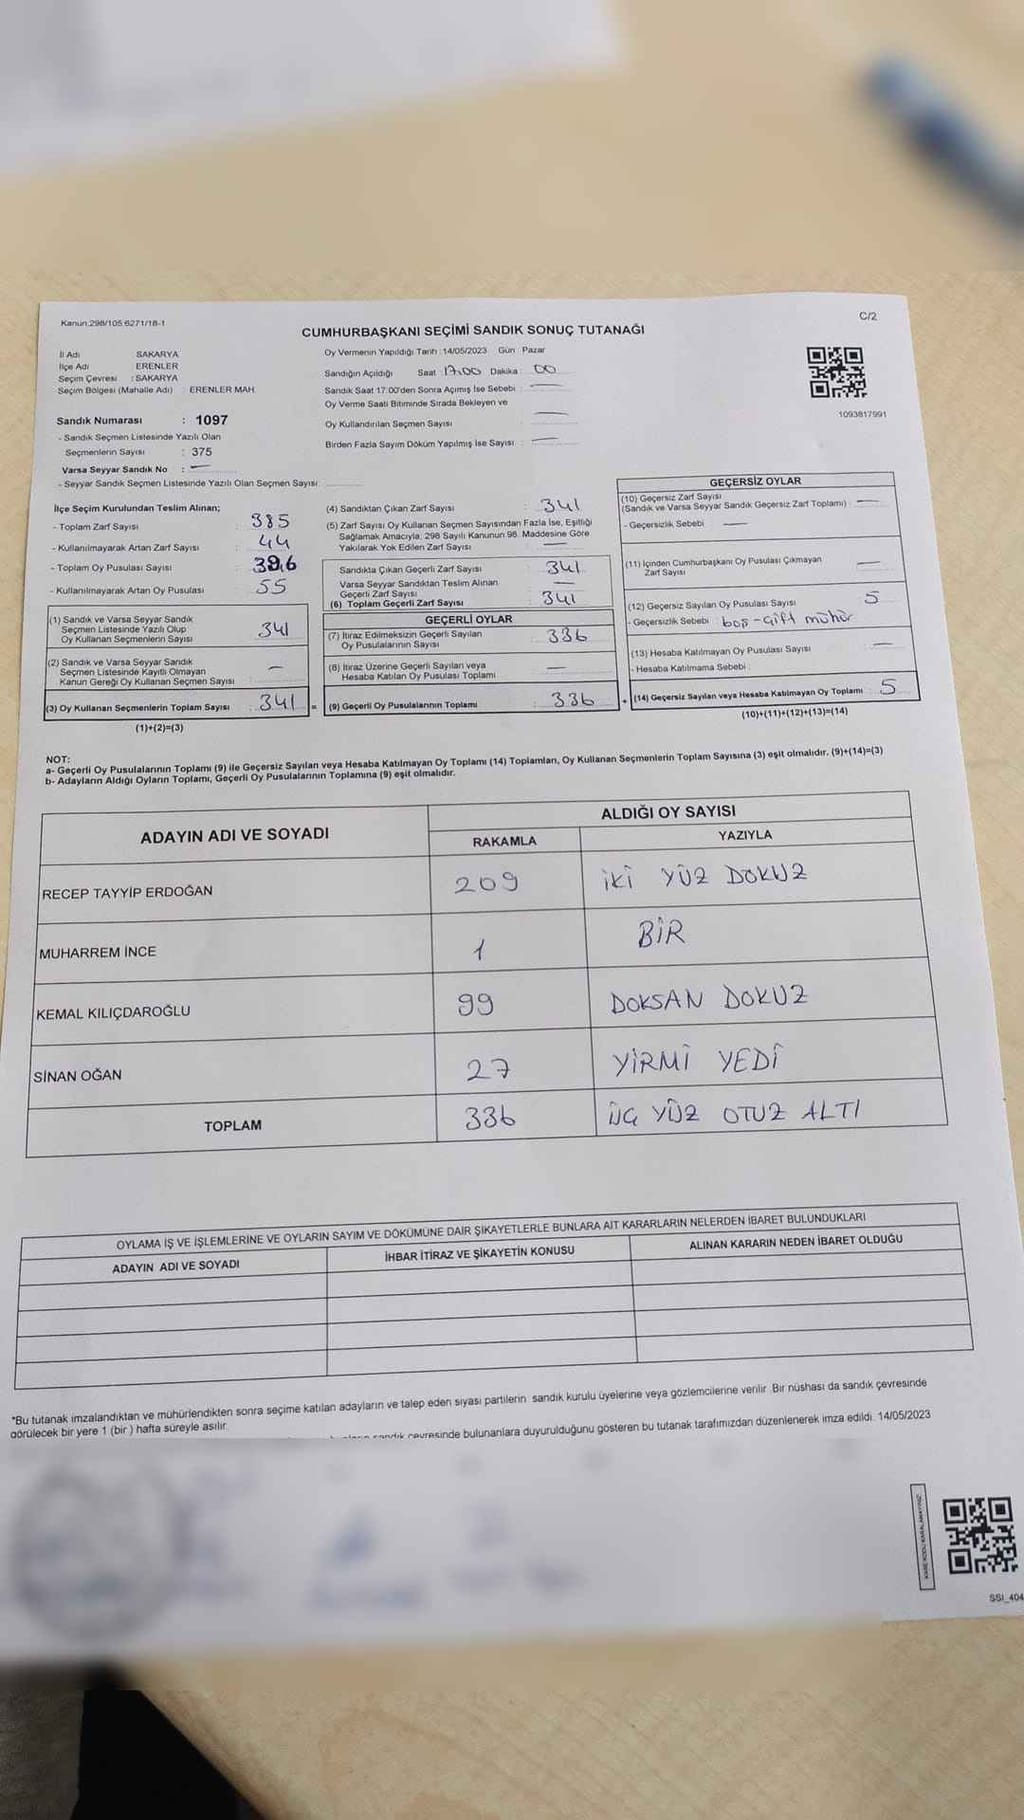 Kanun:298/105.6271/18-1
C/2
CUMHURBAŞKANI SEÇİMİ SANDIK SONUÇ TUTANAĞI
İl Adı SAKARYA
İlçe Adı ERENLER
Seçim Çevresi : SAKARYA
Seçim Bölgesi (Mahalle Adı) ERENLER MAH.
Sandık Numarası : 1097
- Sandık Seçmen Listesinde Yazılı Olan
Seçmenlerin Sayısı : 375
Varsa Seyyar Sandık No : —
- Seyyar Sandık Seçmen Listesinde Yazılı Olan Seçmen Sayısı
Oy Vermenin Yapıldığı Tarih : 14/05/2023 Gün : Pazar
Sandığın Açıldığı Saat 17:00 Dakika : 00
Sandık Saat 17:00'den Sonra Açımış İse Sebebi : —
Oy Verme Saati Bitiminde Sırada Bekleyen ve
Oy Kullandırılan Seçmen Sayısı —
Birden Fazla Sayım Döküm Yapılmış İse Sayısı : —
1093817991
İlçe Seçim Kurulundan Teslim Alınan;
- Toplam Zarf Sayısı : 385
- Kullanılmayarak Artan Zarf Sayısı : 44
- Toplam Oy Pusulası Sayısı : 396
- Kullanılmayarak Artan Oy Pusulası : 55
(1) Sandık ve Varsa Seyyar Sandık
Seçmen Listesinde Yazılı Olup
Oy Kullanan Seçmenlerin Sayısı 341
(2) Sandık ve Varsa Seyyar Sandık
Seçmen Listesinde Kayıtlı Olmayan
Kanun Gereği Oy Kullanan Seçmen Sayısı —
(3) Oy Kullanan Seçmenlerin Toplam Sayısı : 341
(1)+(2)=(3)
(4) Sandıktan Çıkan Zarf Sayısı : 341
(5) Zarf Sayısı Oy Kullanan Seçmen Sayısından Fazla İse, Eşitliği
Sağlamak Amacıyla, 298 Sayılı Kanunun 98. Maddesine Göre
Yakılarak Yok Edilen Zarf Sayısı —
Sandıkta Çıkan Geçerli Zarf Sayısı : 341
Varsa Seyyar Sandıktan Teslim Alınan
Geçerli Zarf Sayısı —
(6) Toplam Geçerli Zarf Sayısı : 341
GEÇERLİ OYLAR
(7) İtiraz Edilmeksizin Geçerli Sayılan
Oy Pusulalarının Sayısı : 336
(8) İtiraz Üzerine Geçerli Sayılan veya
Hesaba Katılan Oy Pusulası Toplamı —
(9) Geçerli Oy Pusulalarının Toplamı : 336
GEÇERSİZ OYLAR
(10) Geçersiz Zarf Sayısı
(Sandık ve Varsa Seyyar Sandık Geçersiz Zarf Toplamı) —
- Geçersizlik Sebebi —
(11) İçinden Cumhurbaşkanı Oy Pusulası Çıkmayan
Zarf Sayısı —
(12) Geçersiz Sayılan Oy Pusulası Sayısı 5
- Geçersizlik Sebebi boş-çift mühür
(13) Hesaba Katılmayan Oy Pusulası Sayısı —
- Hesaba Katılmama Sebebi :
(14) Geçersiz Sayılan veya Hesaba Katılmayan Oy Toplamı : 5
(10)+(11)+(12)+(13)=(14)
NOT:
a- Geçerli Oy Pusulalarının Toplamı (9) ile Geçersiz Sayılan veya Hesaba Katılmayan Oy Toplamı (14) Toplamları, Oy Kullanan Seçmenlerin Toplam Sayısına (3) eşit olmalıdır. (9)+(14)=(3)
b- Adayların Aldığı Oyların Toplamı, Geçerli Oy Pusulalarının Toplamına (9) eşit olmalıdır.
ADAYIN ADI VE SOYADI
ALDIĞI OY SAYISI
RAKAMLA YAZIYLA
RECEP TAYYİP ERDOĞAN 209 İKİ YÜZ DOKUZ
MUHARREM İNCE 1 BİR
KEMAL KILIÇDAROĞLU 99 DOKSAN DOKUZ
SİNAN OĞAN 27 YİRMİ YEDİ
TOPLAM 336 ÜÇ YÜZ OTUZ ALTI
OYLAMA İŞ VE İŞLEMLERİNE VE OYLARIN SAYIM VE DÖKÜMÜNE DAİR ŞİKAYETLERLE BUNLARA AİT KARARLARIN NELERDEN İBARET BULUNDUKLARI
ADAYIN ADI VE SOYADI İHBAR İTİRAZ VE ŞİKAYETİN KONUSU ALINAN KARARIN NEDEN İBARET OLDUĞU
*Bu tutanak imzalandıktan ve mühürlendikten sonra seçime katılan adayların ve talep eden siyasi partilerin sandık kurulu üyelerine veya gözlemcilerine verilir. Bir nüshası da sandık çevresinde
görülecek bir yere 1 (bir) hafta süreyle asılır.
sandık çevresinde bulunanlara duyurulduğunu gösteren bu tutanak tarafımızdan düzenlenerek imza edildi. 14/05/2023
SSI_404